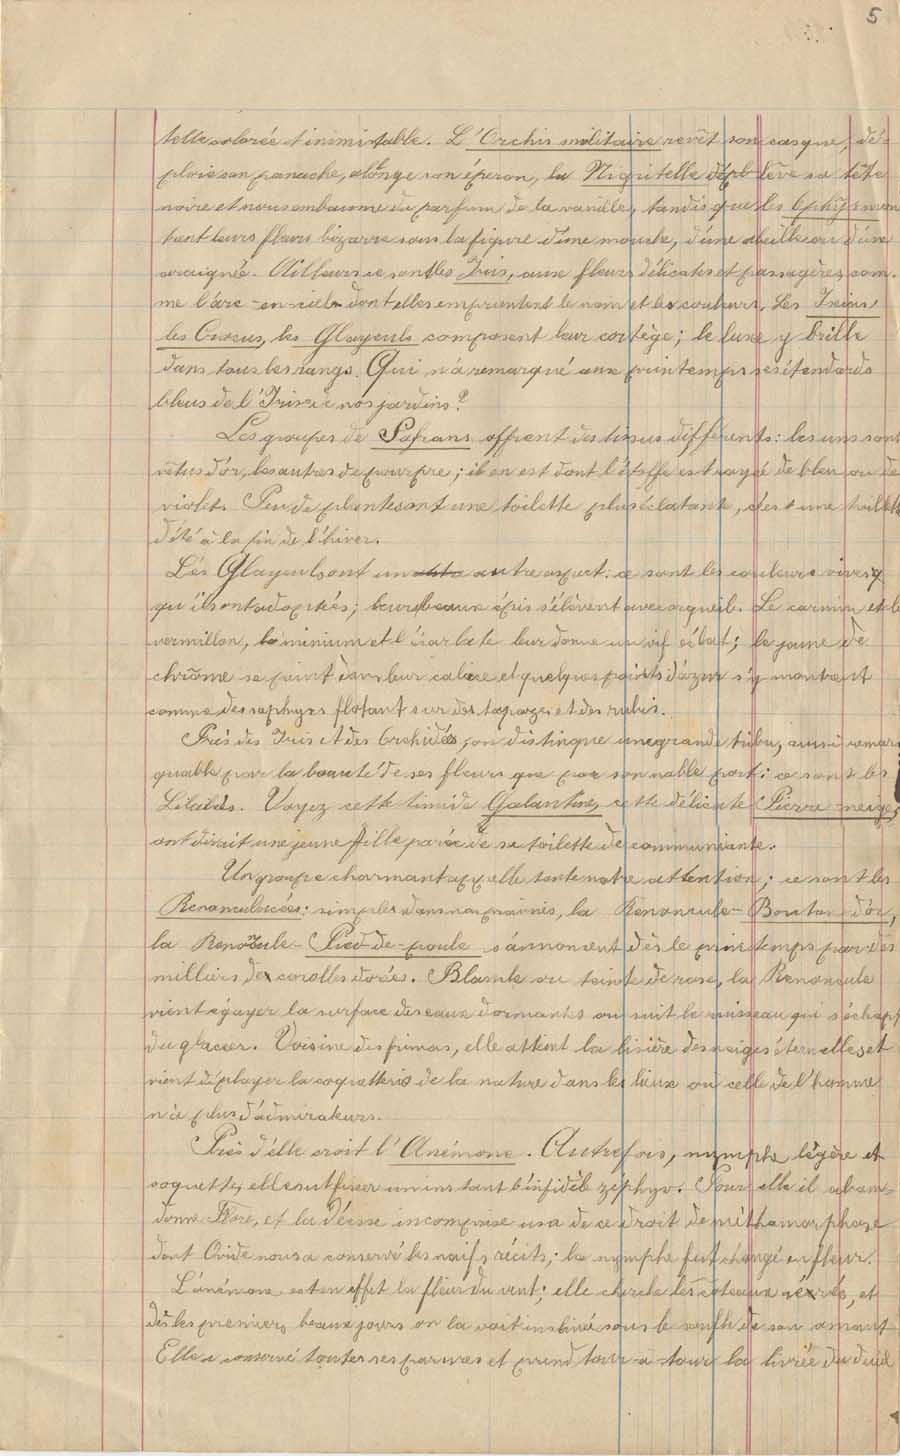 5
telle colorée et inimitable. L'Orchis militaire revêt son casque, dé-
ploie son panache, allonge son éperon, la Nigritelle lève sa tête
noire et nous embaume du parfum de la vanille, tandis que les Ophijs mon
trent leurs fleurs bizarre sous la figure d'une mouche, d'une abeille ou d'une
araignée. Ailleurs ce sont les Iris, aux fleurs délicates et passagères com-
me l'arc-en-ciel dont elles empruntent le nom et les couleurs. Les Ixias,
les Crocus, les Glayeuls composent leur cortège; le luxe y brille
dans tous les rangs. Qui n'a remarqué aux printemps ses étendards
bleus de l'Iris de nos jardins?
Les groupes de Safrans offrent des tissus différents: les uns sont
vêtus d'or, les autres de pourpre; il en est dont l'étoffe est rayée de bleu ou de
violet. Peu de plantes ont une toilette plus éclatante, c'est une toilette
d'été à la fin de l'hiver.
Les Glayeuls ont un autre aspect: ce sont les couleurs vives
qu'ils ont adoptées; leurs beaux épis s'élèvent avec orgueil. Le carmin et le
vermillon, le minium et l'écarlate leur donne un vif éclat; le jaune de
chrôme se peint dans leur calice et quelques points d'azur s'y montrent
comme des saphyrs flotant sur des topazes et des rubis.
Près des Iris et des Orchidés, on distingue une grande tribu, aussi remar
quable par la beauté de ses fleurs que par son noble port: ce sont les
Liliacés. Voyez cette timide Galantine, cette délicate Pierre-neige,
on dirait une jeune fille parée de sa toilette de communiante.
Un groupe charmant appelle toute notre attention; ce sont les
Renonculacées: simples dans nos prairies, la Renoncule-Bouton d'or,
la Renoncule-Pied-de-poule s'annoncent dès le printemps par des
milliers de corolles dorées. Blanche ou teinte de rose, la Renoncule
vient égayer la surface des eaux dormantes ou suit le ruisseau qui s'échapp
du glacier. Voisine des frimas, elle atteint la lisière des neiges éternelles et
vient déployer la coquetterie de la nature dans les lieux où celle de l'homme
n'a plus d'admirateurs.
Près d'elle croit l'Anémone. Autrefois, nymphe légère et
coquette, elle sut fixer un instant l'infidèle zéphyr. Pour elle il aban-
donne Flore, et la Déesse incomprise usa de ce droit de méthamorphose
dont Ovide nous a conservé les naïfs récits; la nymphe fut changé en fleur.
L'anémone est en effet la fleur du vent; elle cherche les côteaux aérés, et
dès les premiers beaux jours on la voit inclinée sous le souffle de son amant
Elle a conservé toutes ses parures et prend tour-à-tour la livrée du deuil